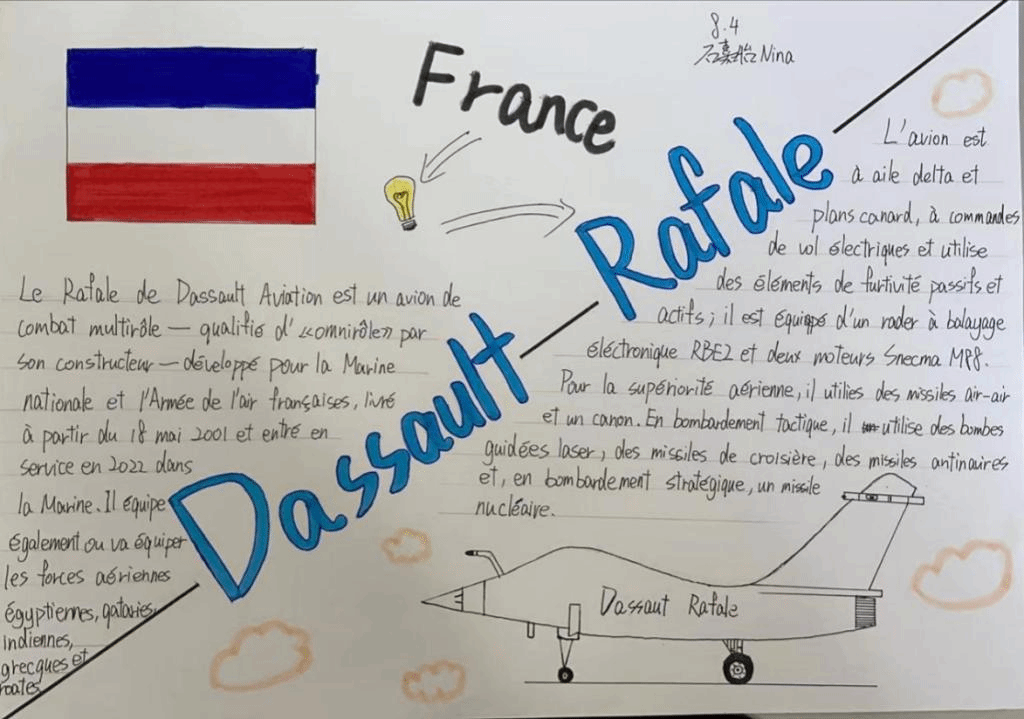 8.4
石嘉怡 Nina
France
Dassault Rafale
Le Rafale de Dassault Aviation est un avion de
combat multirôle — qualifié d' «omnirôle» par
son constructeur — développé pour la Marine
nationale et l'Armée de l'air françaises, livré
à partir du 18 mai 2001 et entré en
service en 2022 dans
la Marine. Il équipe
également ou va équiper
les forces aériennes
égyptiennes, qataries,
indiennes,
grecques et
roates
L'avion est
à aile delta et
plans canard, à commandes
de vol électriques et utilise
des éléments de furtivité passifs et
actifs; il est équipé d'un rader à balayage
éléctronique RBE2 et deux moteurs Snecma M88.
Pour la supériorité aérienne, il utilies des missiles air-air
et un canon. En bombardement tactique, il utilise des bombes
guidées laser, des missiles de croisière, des missiles antinaires
et, en bombardement stratégique, un missile
nucléaire.
Dassaut Rafale